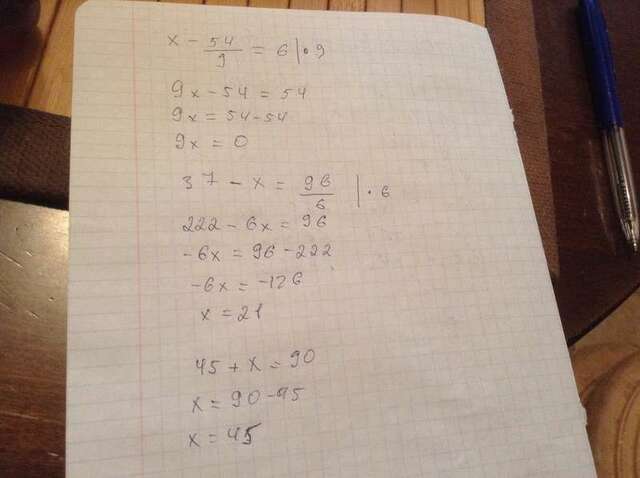 x - 54/9 = 6 | · 9
9x - 54 = 54
9x = 54 - 54
9x = 0
37 - x = 96/6 | · 6
222 - 6x = 96
-6x = 96 - 222
-6x = -126
x = 21
45 + x = 90
x = 90 - 45
x = 45